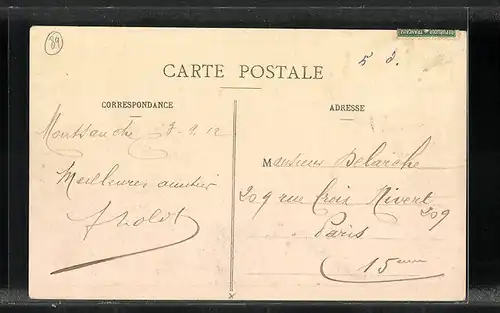 89
RÉPUBLIQUE FRANÇAISE
5 d.
CARTE POSTALE
CORRESPONDANCE
ADRESSE
Montsauche 3-9.12
Meilleures amitiés
Monsieur Delarche
209 rue Croix Nivert 209
Paris
15eme